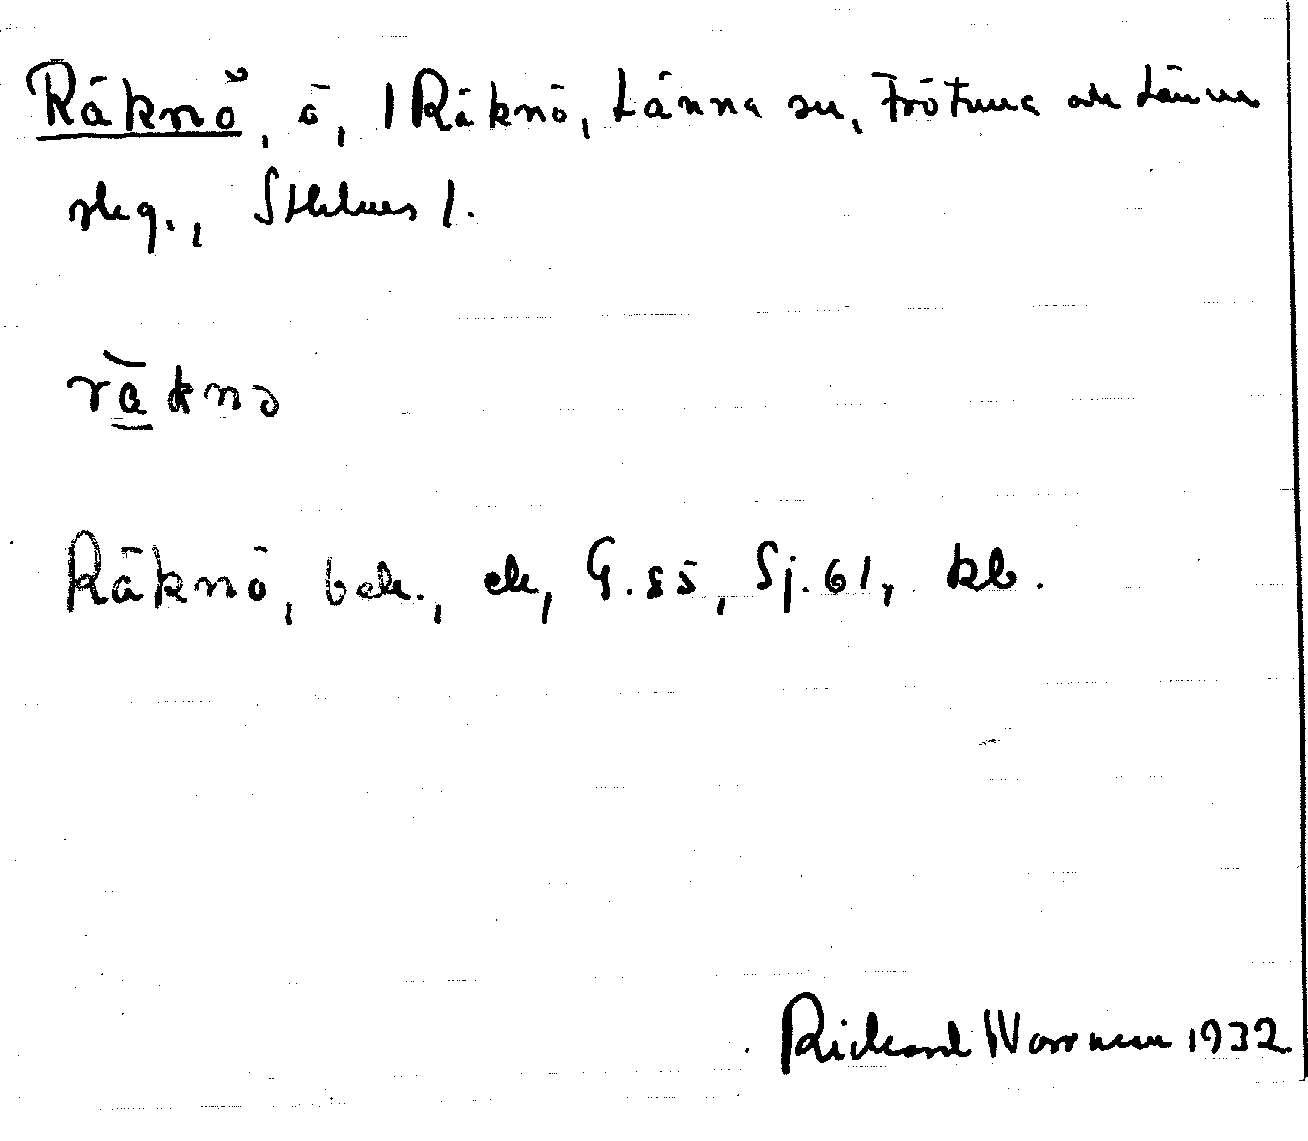 Räknö, ö, 1 Räknö, Länna sn, Frötuna och Länna
skg., Sthlms l.
räknə
Räknö, bek., ek, G.85, Sj.61, kb.
Rickard Wornman 1932